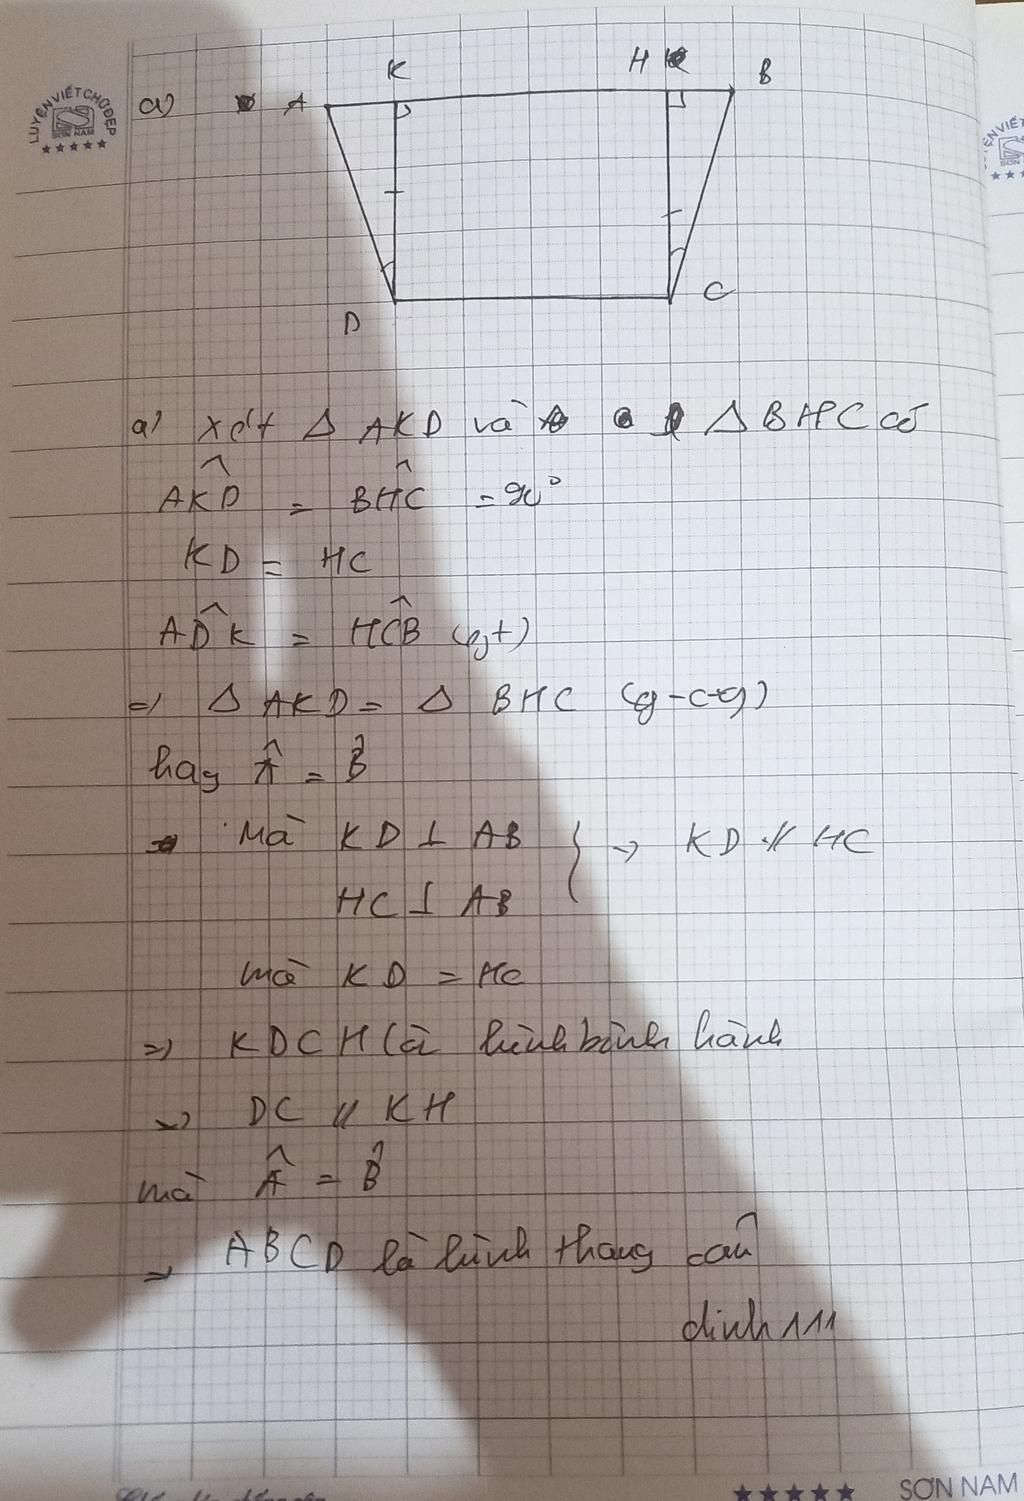 LUYỆN VIẾT CHỮ ĐẸP
SƠN NAM
K H B
a) A
D C
a) xét Δ AKD và Δ BHC có
AKD̂ = BHĈ = 90°
KD = HC
AD̂K = HĈB (gt)
=> Δ AKD = Δ BHC (g-c-g)
hay Â = B̂
Mà KD ⊥ AB } -> KD // HC
HC ⊥ AB
mà KD = HC
=> KDCH là hình bình hành
=> DC // KH
mà Â = B̂
=> ABCD là hình thang cân
đỉnh 111
SƠN NAM